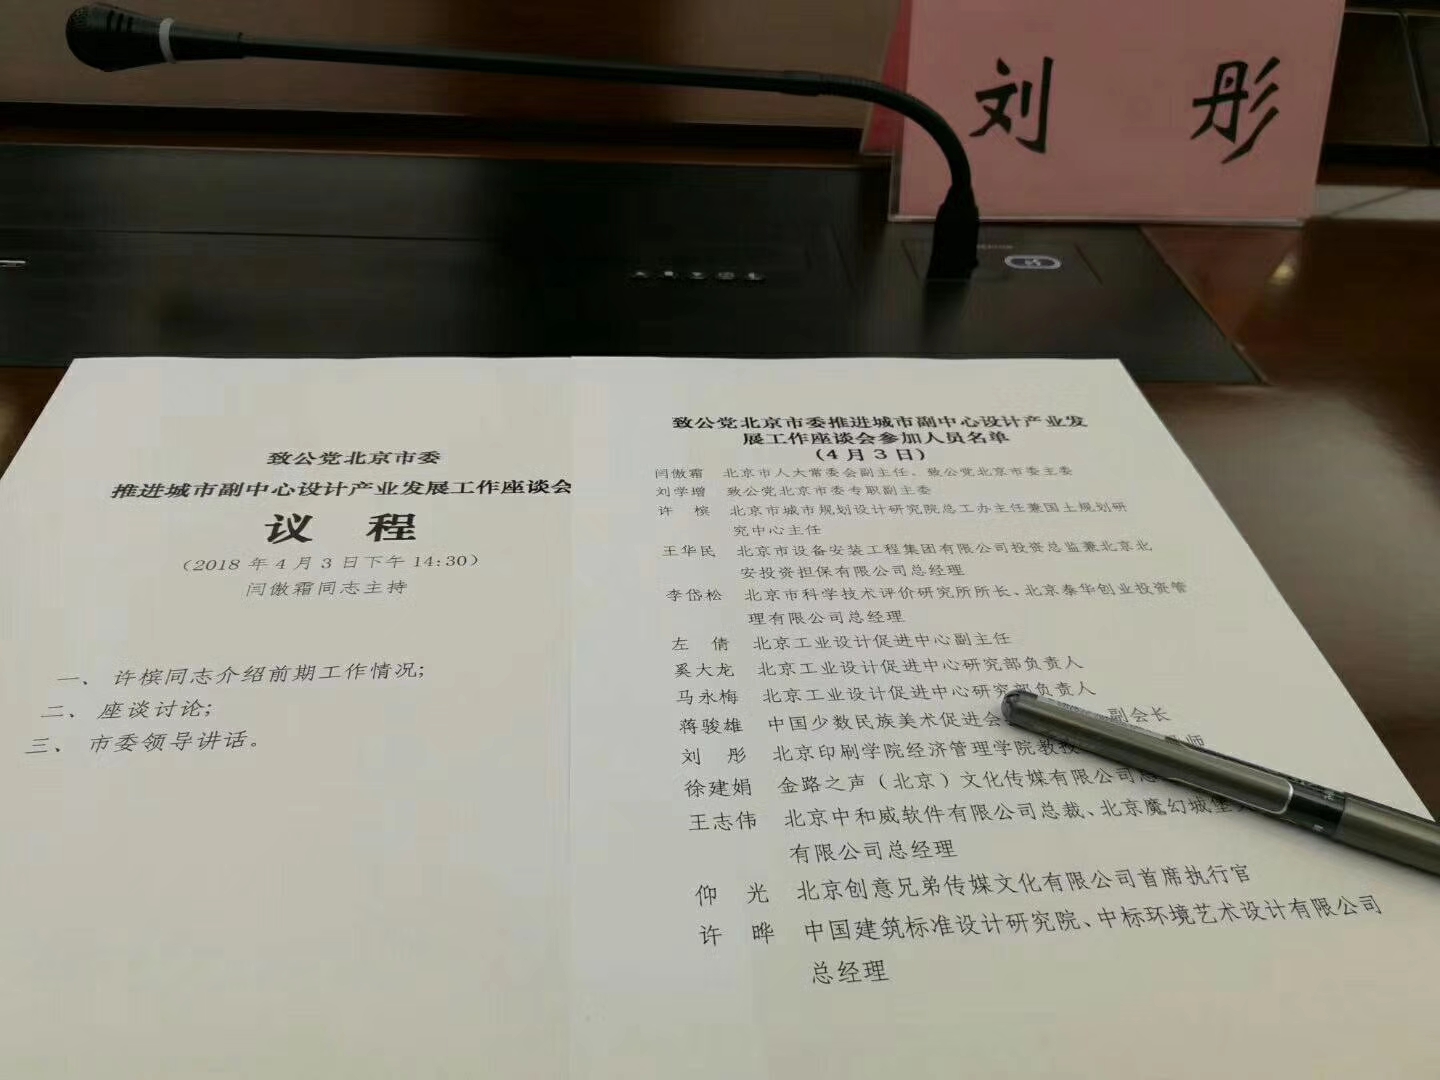 刘 彤
致公党北京市委
推进城市副中心设计产业发展工作座谈会
议 程
（2018 年 4 月 3 日下午 14:30）
闫傲霜同志主持
一、 许槟同志介绍前期工作情况;
二、 座谈讨论;
三、 市委领导讲话。
致公党北京市委推进城市副中心设计产业发
展工作座谈会参加人员名单
（4 月 3 日）
闫傲霜 北京市人大常委会副主任、致公党北京市委主委
刘学增 致公党北京市委专职副主委
许 槟 北京市城市规划设计研究院总工办主任兼国土规划研
究中心主任
王华民 北京市设备安装工程集团有限公司投资总监兼北京北
安投资担保有限公司总经理
李岱松 北京市科学技术评价研究所所长、北京泰华创业投资管
理有限公司总经理
左 倩 北京工业设计促进中心副主任
奚大龙 北京工业设计促进中心研究部负责人
马永梅 北京工业设计促进中心研究部负责人
蒋骏雄 中国少数民族美术促进会 副会长
刘 彤 北京印刷学院经济管理学院教授 导师
徐建娟 金路之声（北京）文化传媒有限公司总
王志伟 北京中和威软件有限公司总裁、北京魔幻城堡
有限公司总经理
仰 光 北京创意兄弟传媒文化有限公司首席执行官
许 晔 中国建筑标准设计研究院、中标环境艺术设计有限公司
总经理